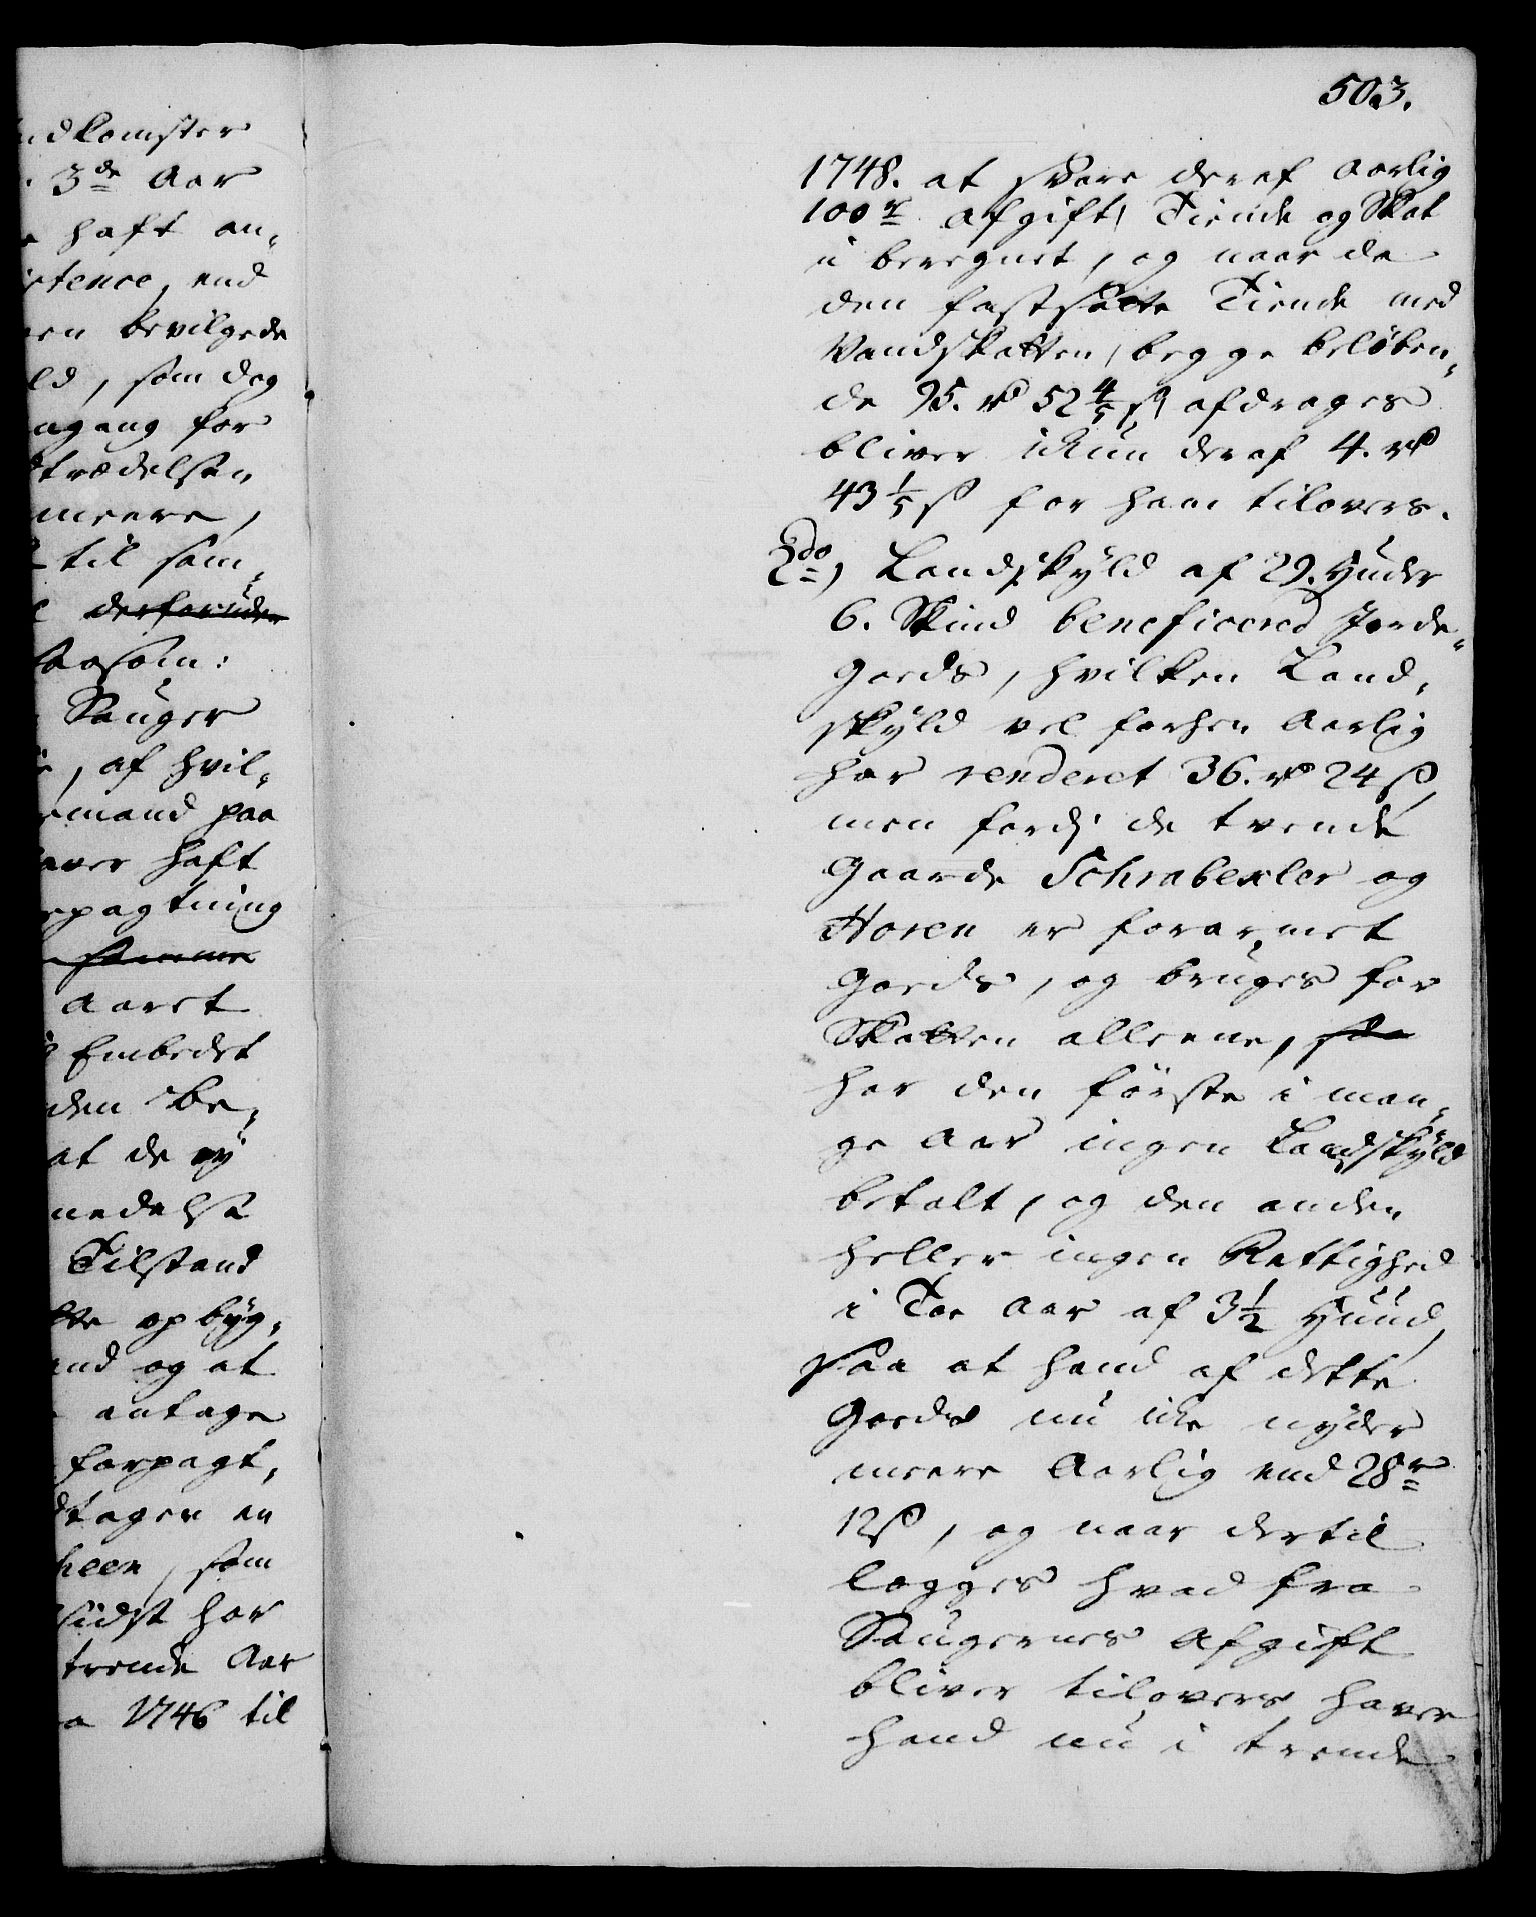 503.
ndkomster
3de Aar
haft an„
stence, end
en bevilgede
ld, som dog
ngang for
trædelsen
meere,
til som„
derforuden
saasom:
Sauger
, af hvil„
mand paa
aver haft
rpagtning
samme
Aaret
Embedet
den be„
at de ey
nedelse
Tilstand
opbyg„
nd og at
antage
forpagt„
tager en
heen, som
sidst har
trende Aar
a 1746 til
1748. at svare deraf Aarlig
100 r afgift, Tiende og Skat
i beregnet, og naar da
den fastsatte Tiende med
Vandskatten, begge beløben„
de 95. rd 52 4/5 s, afdrages
bliver ikun deraf 4. rd
43 1/5 s for ham tilovers.
2do) Landskyld af 29. Huder
6. Skind beneficered Jorde„
Goeds, hvilken Land„
skyld vel forhen Aarlig
har renderet 36. rd 24 s,
men fordj de tvende
Gaarde Schrabekler og
Horen er forarmet
Goeds, og bruges for
Skatten alleene, saa
har den første i man„
ge Aar ingen Landskyld
betalt, og den anden
heller ingen Rettighed
i Toe Aar af 3 1/2 Huud,
saa at hand af dette
Goeds nu ike nyder
meere Aarlig end 28 r
12 s, og naar dertil
legges hvad fra
Saugernes Afgift
bliver tilovers, haver
hand nu i trende